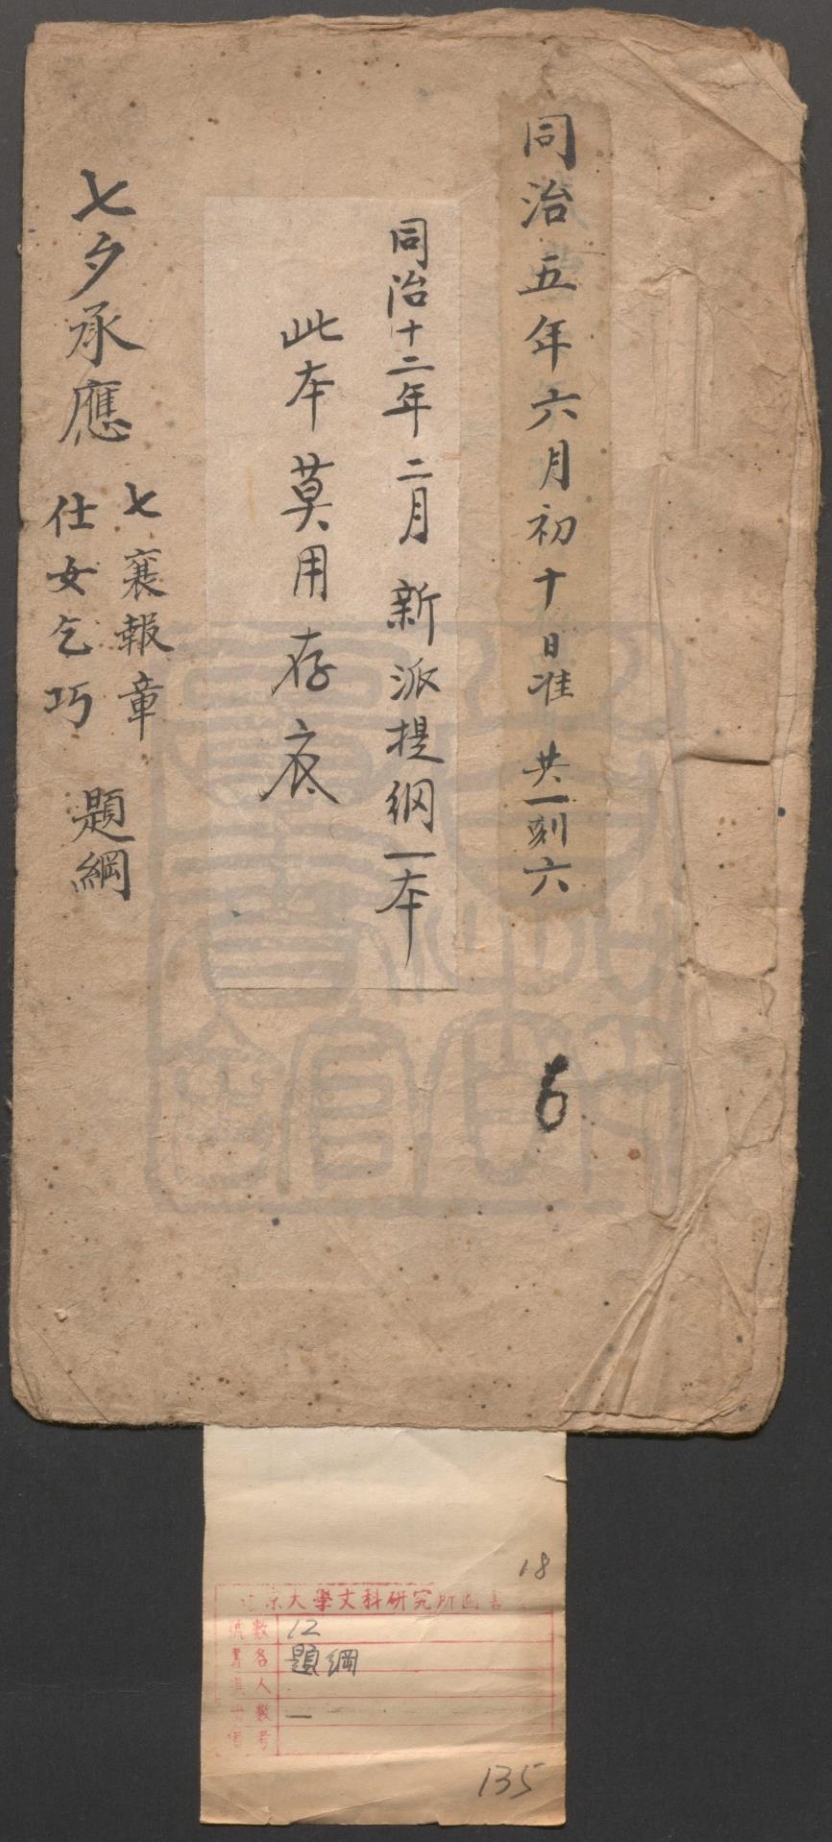 同治五年六月初十日准 共一刻六
同治十二年二月新派提綱一本
此本莫用存底
七夕承應
七襄報章
仕女乞巧
題綱
18
京大學文科研究所
12
題綱
一
135